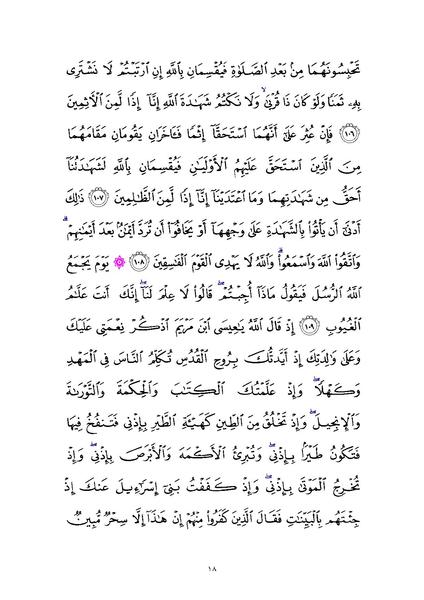 تَحْبِسُونَهُمَا مِنۢ بَعْدِ ٱلصَّلَوٰةِ فَيُقْسِمَانِ بِٱللَّهِ إِنِ ٱرْتَبْتُمْ لَا نَشْتَرِى
بِهِۦ ثَمَنًا وَلَوْ كَانَ ذَا قُرْبَىٰ ۙ وَلَا نَكْتُمُ شَهَـٰدَةَ ٱللَّهِ إِنَّآ إِذًا لَّمِنَ ٱلْـَٔاثِمِينَ
﴿١٠٦﴾ فَإِنْ عُثِرَ عَلَىٰٓ أَنَّهُمَا ٱسْتَحَقَّآ إِثْمًا فَـَٔاخَرَانِ يَقُومَانِ مَقَامَهُمَا
مِنَ ٱلَّذِينَ ٱسْتَحَقَّ عَلَيْهِمُ ٱلْأَوْلَيَـٰنِ فَيُقْسِمَانِ بِٱللَّهِ لَشَهَـٰدَتُنَآ
أَحَقُّ مِن شَهَـٰدَتِهِمَا وَمَا ٱعْتَدَيْنَآ إِنَّآ إِذًا لَّمِنَ ٱلظَّـٰلِمِينَ ﴿١٠٧﴾ ذَٰلِكَ
أَدْنَىٰٓ أَن يَأْتُوا۟ بِٱلشَّهَـٰدَةِ عَلَىٰ وَجْهِهَآ أَوْ يَخَافُوٓا۟ أَن تُرَدَّ أَيْمَـٰنٌۢ بَعْدَ أَيْمَـٰنِهِمْ ۗ
وَٱتَّقُوا۟ ٱللَّهَ وَٱسْمَعُوا۟ ۗ وَٱللَّهُ لَا يَهْدِى ٱلْقَوْمَ ٱلْفَـٰسِقِينَ ﴿١٠٨﴾ ۞ يَوْمَ يَجْمَعُ
ٱللَّهُ ٱلرُّسُلَ فَيَقُولُ مَاذَآ أُجِبْتُمْ ۖ قَالُوا۟ لَا عِلْمَ لَنَآ ۖ إِنَّكَ أَنتَ عَلَّـٰمُ
ٱلْغُيُوبِ ﴿١٠٩﴾ إِذْ قَالَ ٱللَّهُ يَـٰعِيسَى ٱبْنَ مَرْيَمَ ٱذْكُرْ نِعْمَتِى عَلَيْكَ
وَعَلَىٰ وَٰلِدَتِكَ إِذْ أَيَّدتُّكَ بِرُوحِ ٱلْقُدُسِ تُكَلِّمُ ٱلنَّاسَ فِى ٱلْمَهْدِ
وَكَهْلًا ۖ وَإِذْ عَلَّمْتُكَ ٱلْكِتَـٰبَ وَٱلْحِكْمَةَ وَٱلتَّوْرَىٰةَ
وَٱلْإِنجِيلَ ۖ وَإِذْ تَخْلُقُ مِنَ ٱلطِّينِ كَهَيْـَٔةِ ٱلطَّيْرِ بِإِذْنِى فَتَنفُخُ فِيهَا
فَتَكُونُ طَيْرًۢا بِإِذْنِى ۖ وَتُبْرِئُ ٱلْأَكْمَهَ وَٱلْأَبْرَصَ بِإِذْنِى ۖ وَإِذْ
تُخْرِجُ ٱلْمَوْتَىٰ بِإِذْنِى ۖ وَإِذْ كَفَفْتُ بَنِىٓ إِسْرَٰٓءِيلَ عَنكَ إِذْ
جِئْتَهُم بِٱلْبَيِّنَـٰتِ فَقَالَ ٱلَّذِينَ كَفَرُوا۟ مِنْهُمْ إِنْ هَـٰذَآ إِلَّا سِحْرٌ مُّبِينٌ
١٨